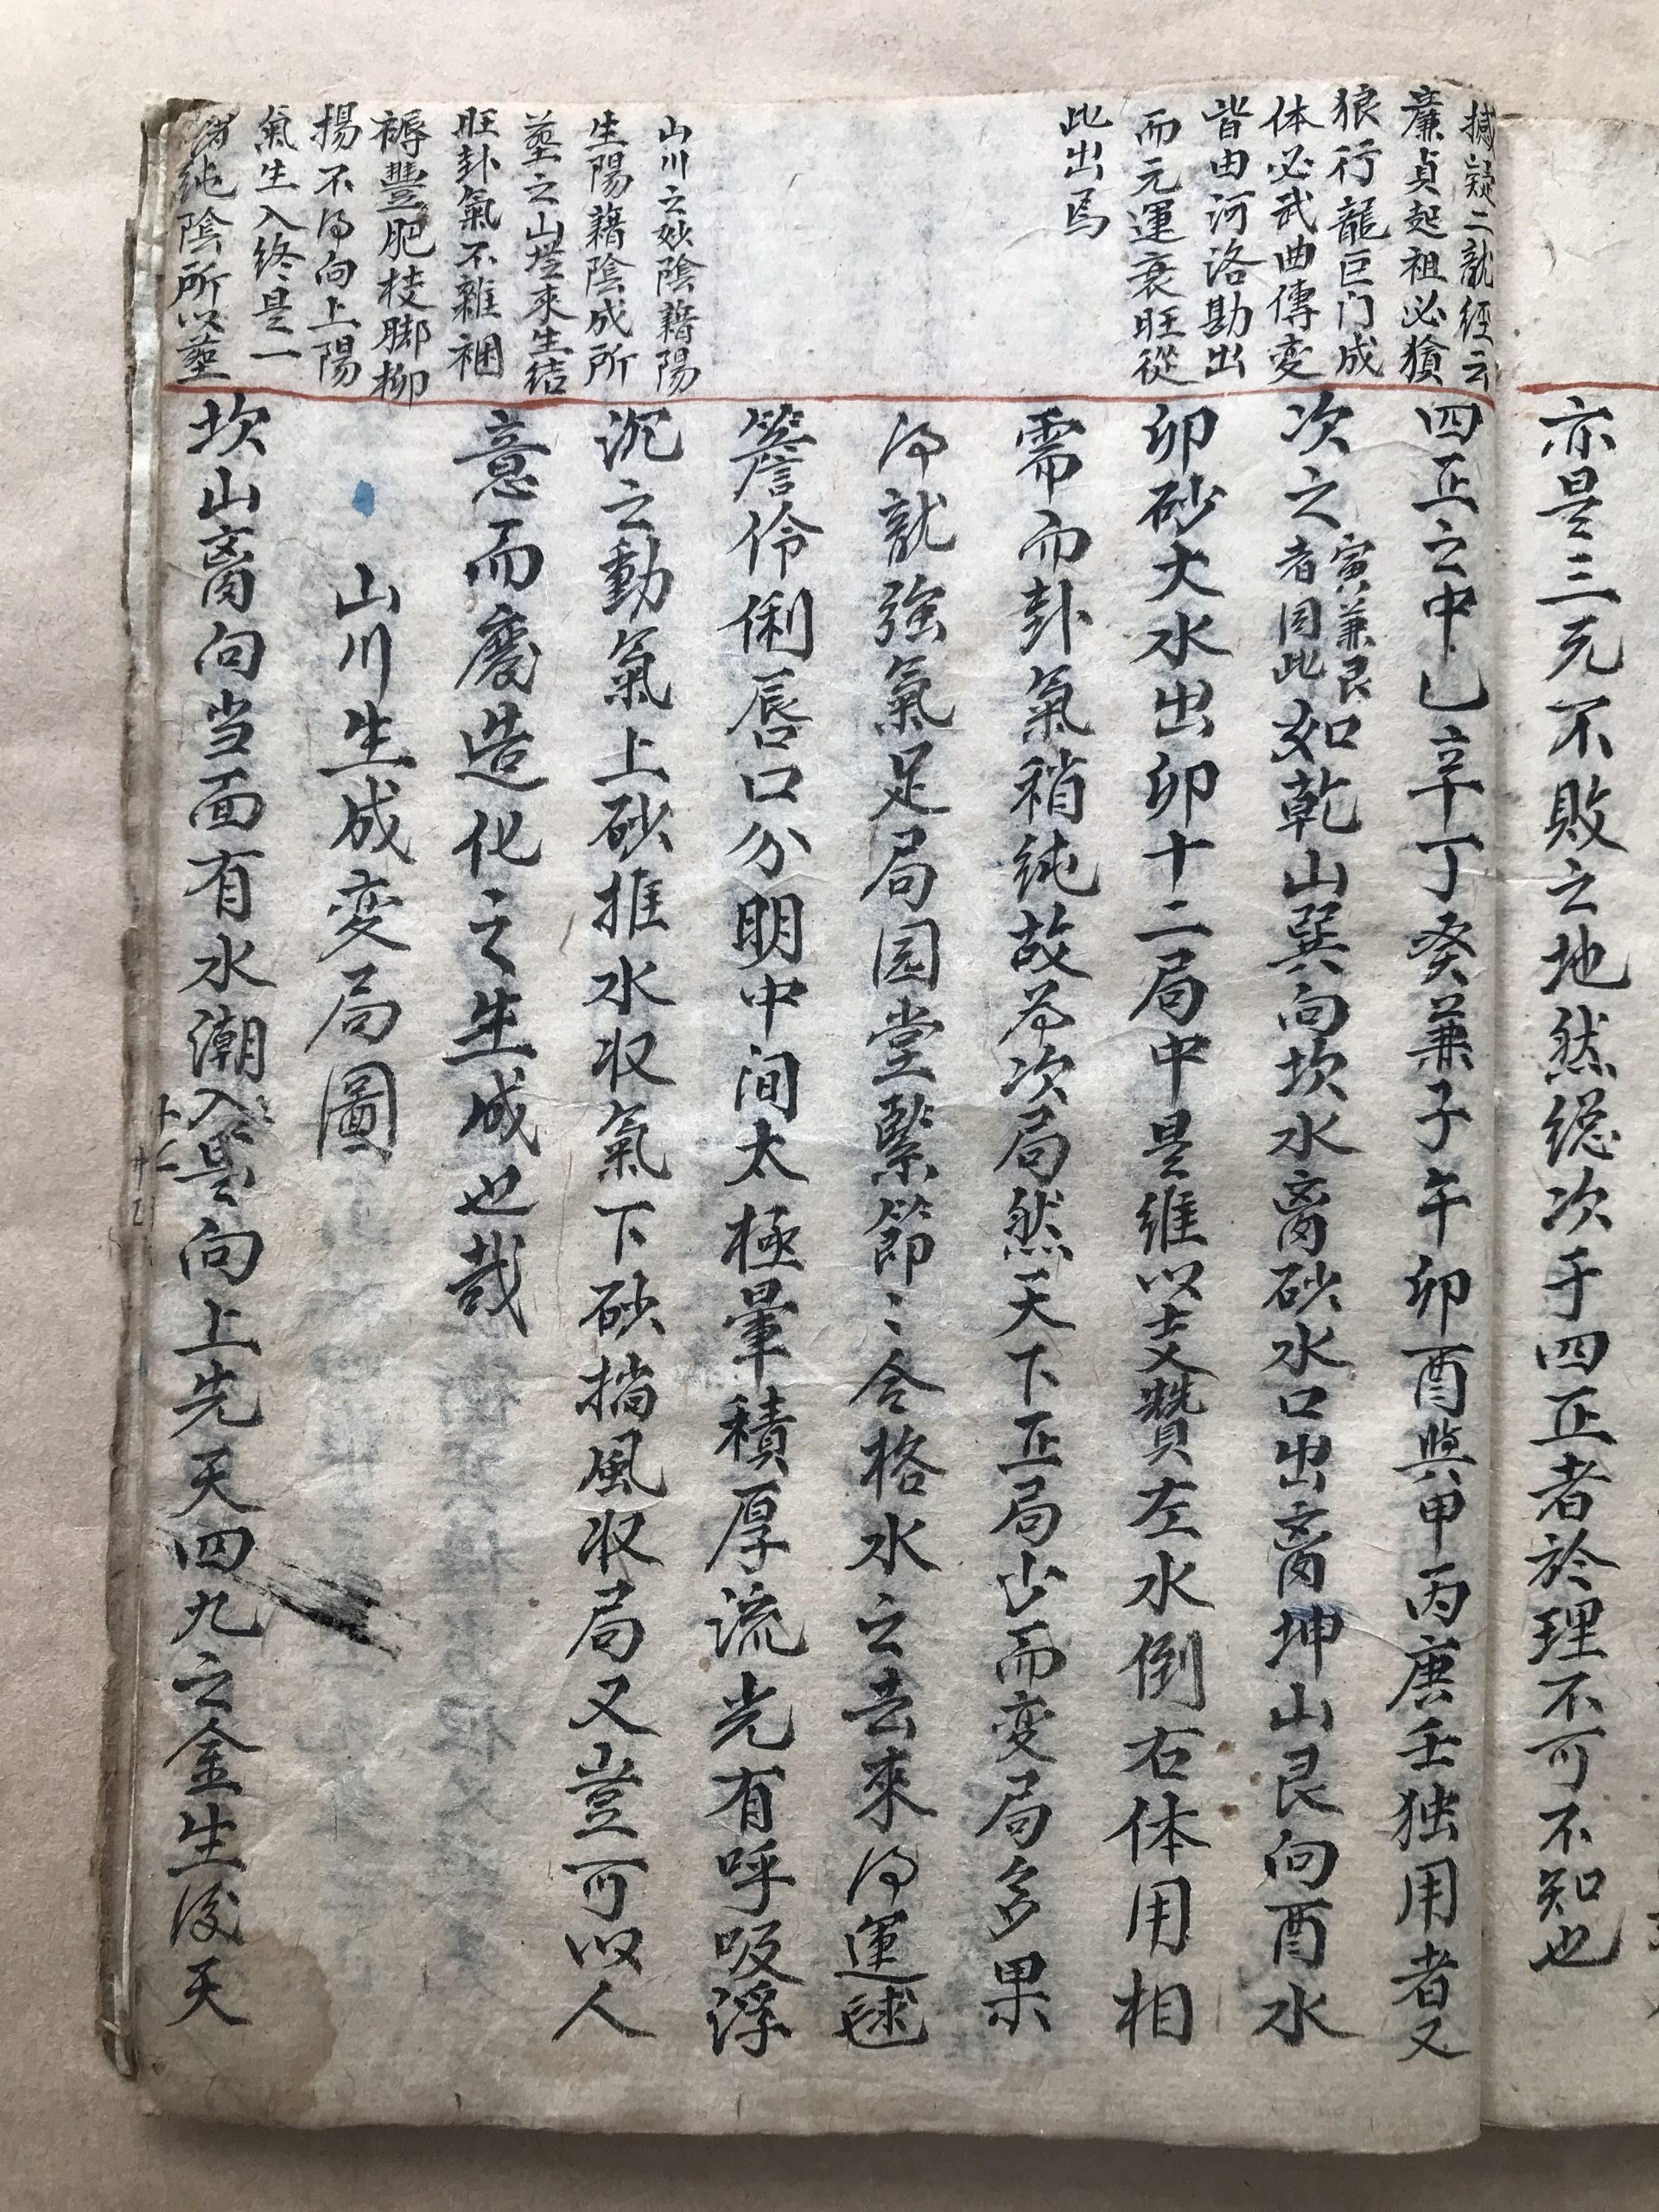 亦是三元不敗之地然總次于四正者於理不可不知也
撼疑二龍經云
廉貞起祖必
狼行龍巨门成
体必武曲傳变
皆由河洛勘出
而元運衰旺從
此出焉
四正之中乙辛丁癸兼子午卯酉與甲丙庚壬独用者又
次之
寅兼艮
者同此
如乾山巽向坎水离砂水口出离坤山艮向酉水
卯砂大水出卯十二局中是維以支贊左水倒右体用相
需而卦氣稍純故为次局然天下正局少而变局多果
得龍強氣足局园堂緊節〻合格水之去來得運毬
簷伶俐唇口分明中间太極暈積厚流光有呼吸浮
沉之動氣上砂推水収氣下砂擋風収局又豈可以人
意而廢造化之生成也哉
山川之妙陰藉陽
生陽藉陰成所
塟之山從來生结
旺卦氣不雜裀
褥豐肥枝脚
揚不得向上陽
氣生入終是一
純陰所以塟
山川生成变局圖
坎山离向当面有水潮入是向上先天四九之金生後天